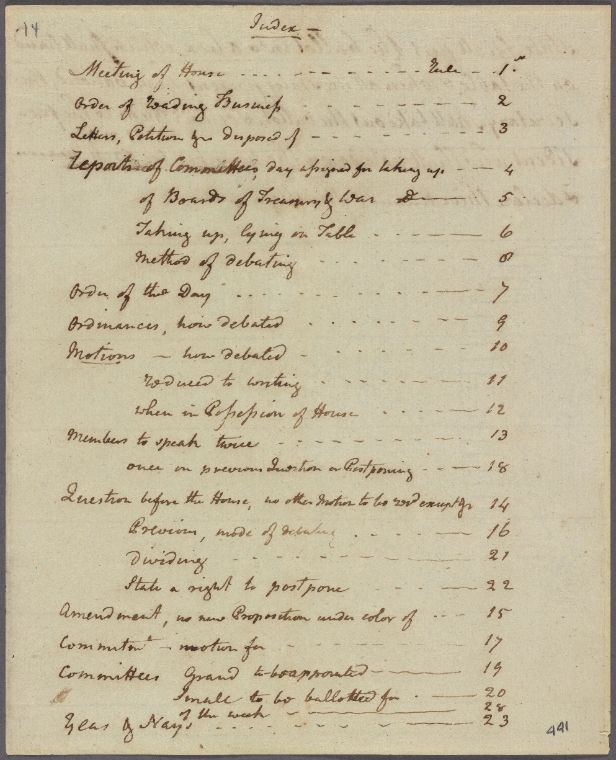 14
Index —
Meeting of House - - - - - - - - - - Rule - 1st
Order of reading Business - - - - - - - 2
Letters, Petitions &c disposed of - - - - - - 3
Reports of Committees day assigned for taking up - - - 4
of Boards of Treasury & War Do 5
Taking up, lying on Table - - - - - 6
Method of debating - - - - - - 8
Order of the Day - - - - - - - - 7
Ordinances, how debated - - - - - - 9
Motions — how debated - - - - - - 10
reduced to writing - - - - - - 11
when in Possession of House - - - - 12
Members to speak twice - - - - - - - 13
once on previous Question or Postponing - - - 18
Question before the House, no other Motion to be recd except &c 14
Previous, mode of debating - - - - 16
Dividing - - - - - - - - 21
State a right to postpone - - - 22
Amendment, no new Proposition under color of - - - 15
Commitmt — motion for - - - - - - 17
Committees Grand to be appointed - - - 19
Small to be ballotted for - - - 20
of the week - - - - 28
Yeas & Nays - - - - - - - - 23
441